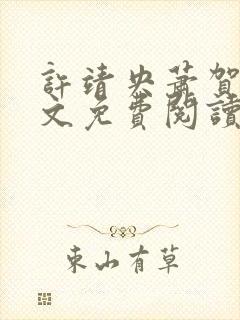 許靖央蕭賀
文免費閱讀
東山有草